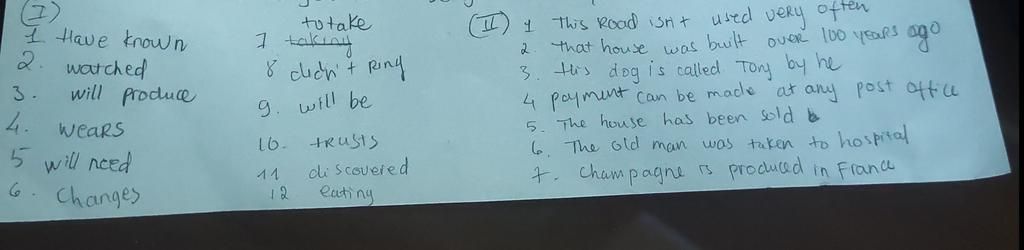 (I)
1 Have known
2. watched
3. will produce
4. wears
5 will need
6. Changes
to take
7 taking
8 didn't Ring
9. will be
10. trusts
11 discovered
12 eating
(II) 1 This Road isn't used very often
2. that house was built over 100 years ago
3. this dog is called Tony by he
4 payment can be made at any post office
5. The house has been sold
6. The old man was taken to hospital
7. Champagne is produced in France